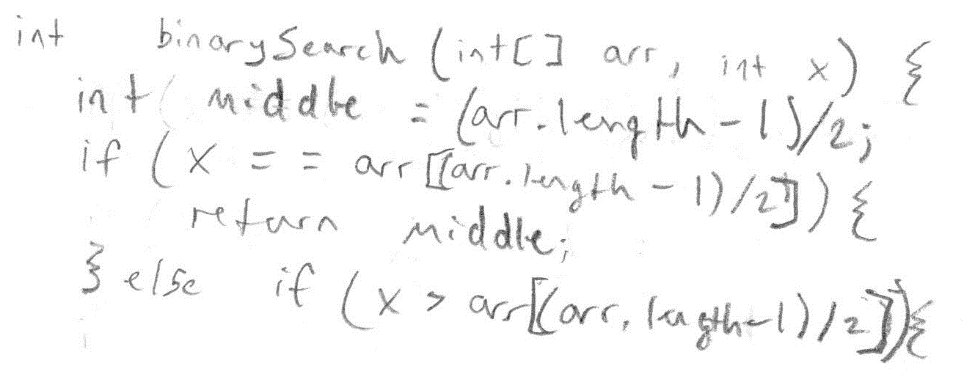 int binarySearch (int[] arr, int x) {
int middle = (arr.length-1)/2;
if (x == arr[(arr.length-1)/2]) {
return middle;
} else if (x > arr[(arr.length-1)/2]){